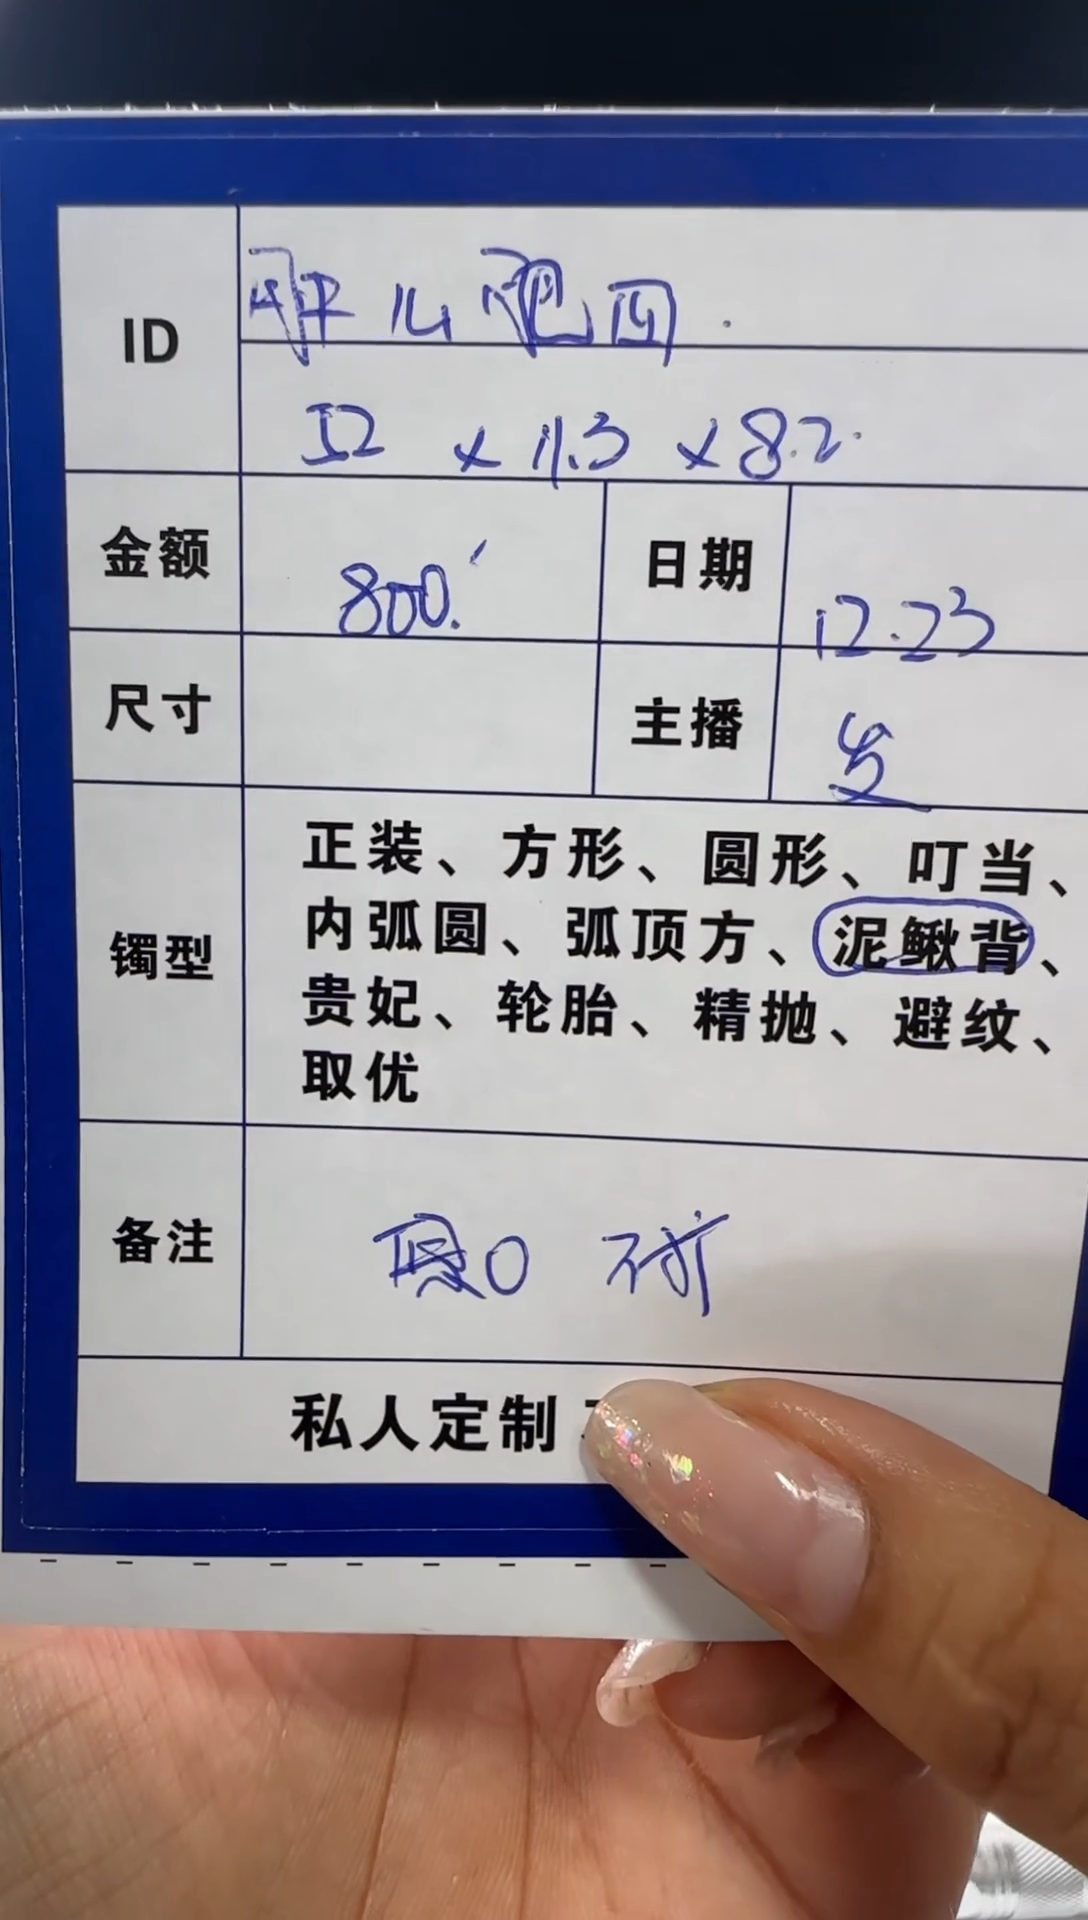 ID
52 × 11.3 × 8.2
金额 800. 日期 12.23
尺寸 主播
镯型 正装、方形、圆形、叮当、
内弧圆、弧顶方、泥鳅背、
贵妃、轮胎、精抛、避纹、
取优
备注
私人定制